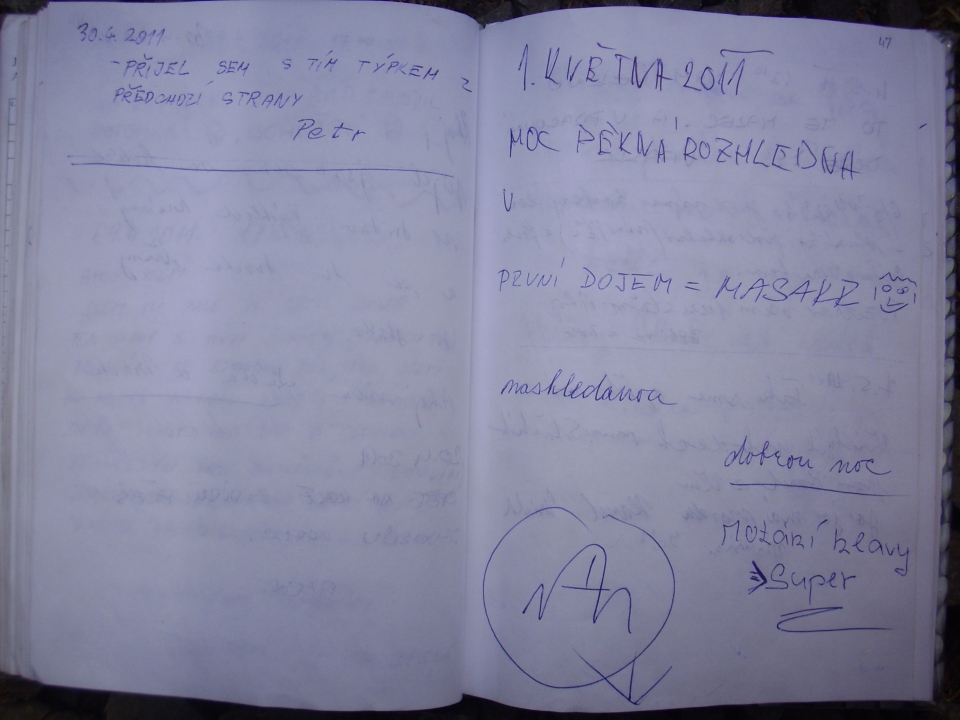 30.4. 2011
- PŘIJEL SEM S TÍM TÝPKEM Z
PŘEDCHOZÍ STRANY
Petr
47
1. KVĚTNA 2011
MOC PĚKNÁ ROZHLEDNA
V
PRVNÍ DOJEM = MASAKR
nashledanou
dobrou noc
klavy
Super